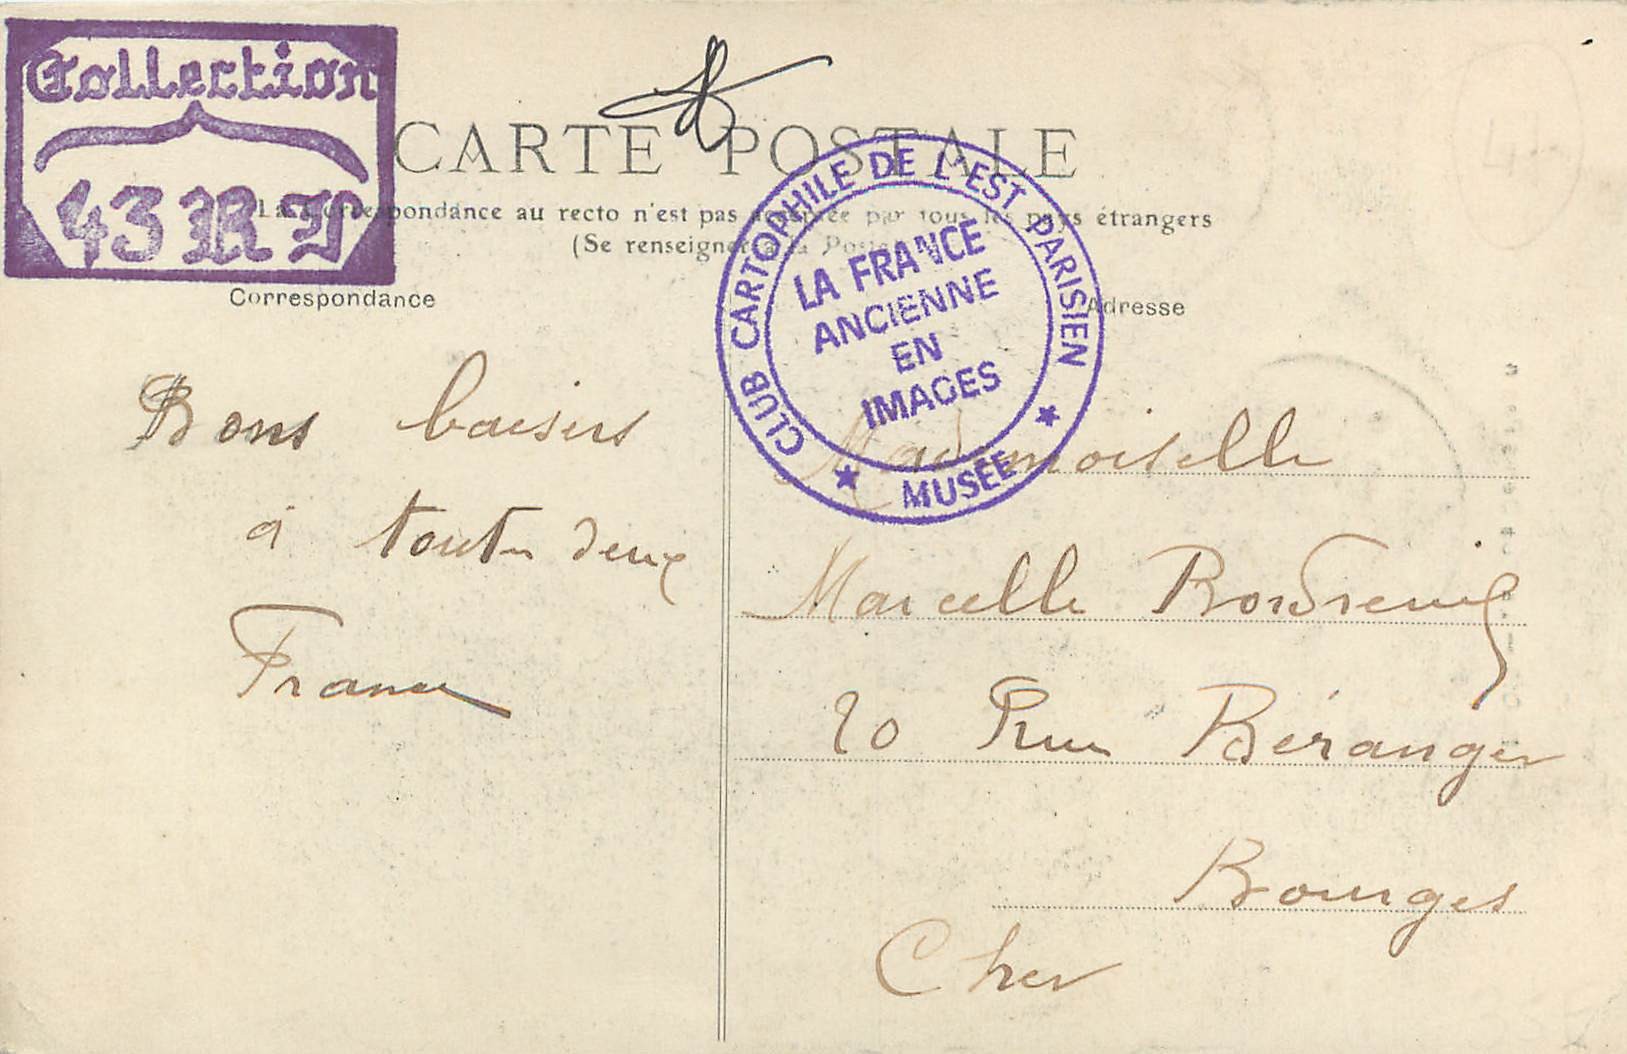 Collection
43 RD
CARTE POSTALE
La Correspondance au recto n'est pas acceptée par tous les pays étrangers
(Se renseigner à la Poste
CLUB CARTOPHILE DE L'EST PARISIEN
LA FRANCE
ANCIENNE
EN
IMAGES
★ MUSÉE ★
Correspondance
Adresse
Bons baisers
à toute deux
France
Mademoiselle
Marcelle Bordreuil
20 Rue Béranger
Bourges
Cher